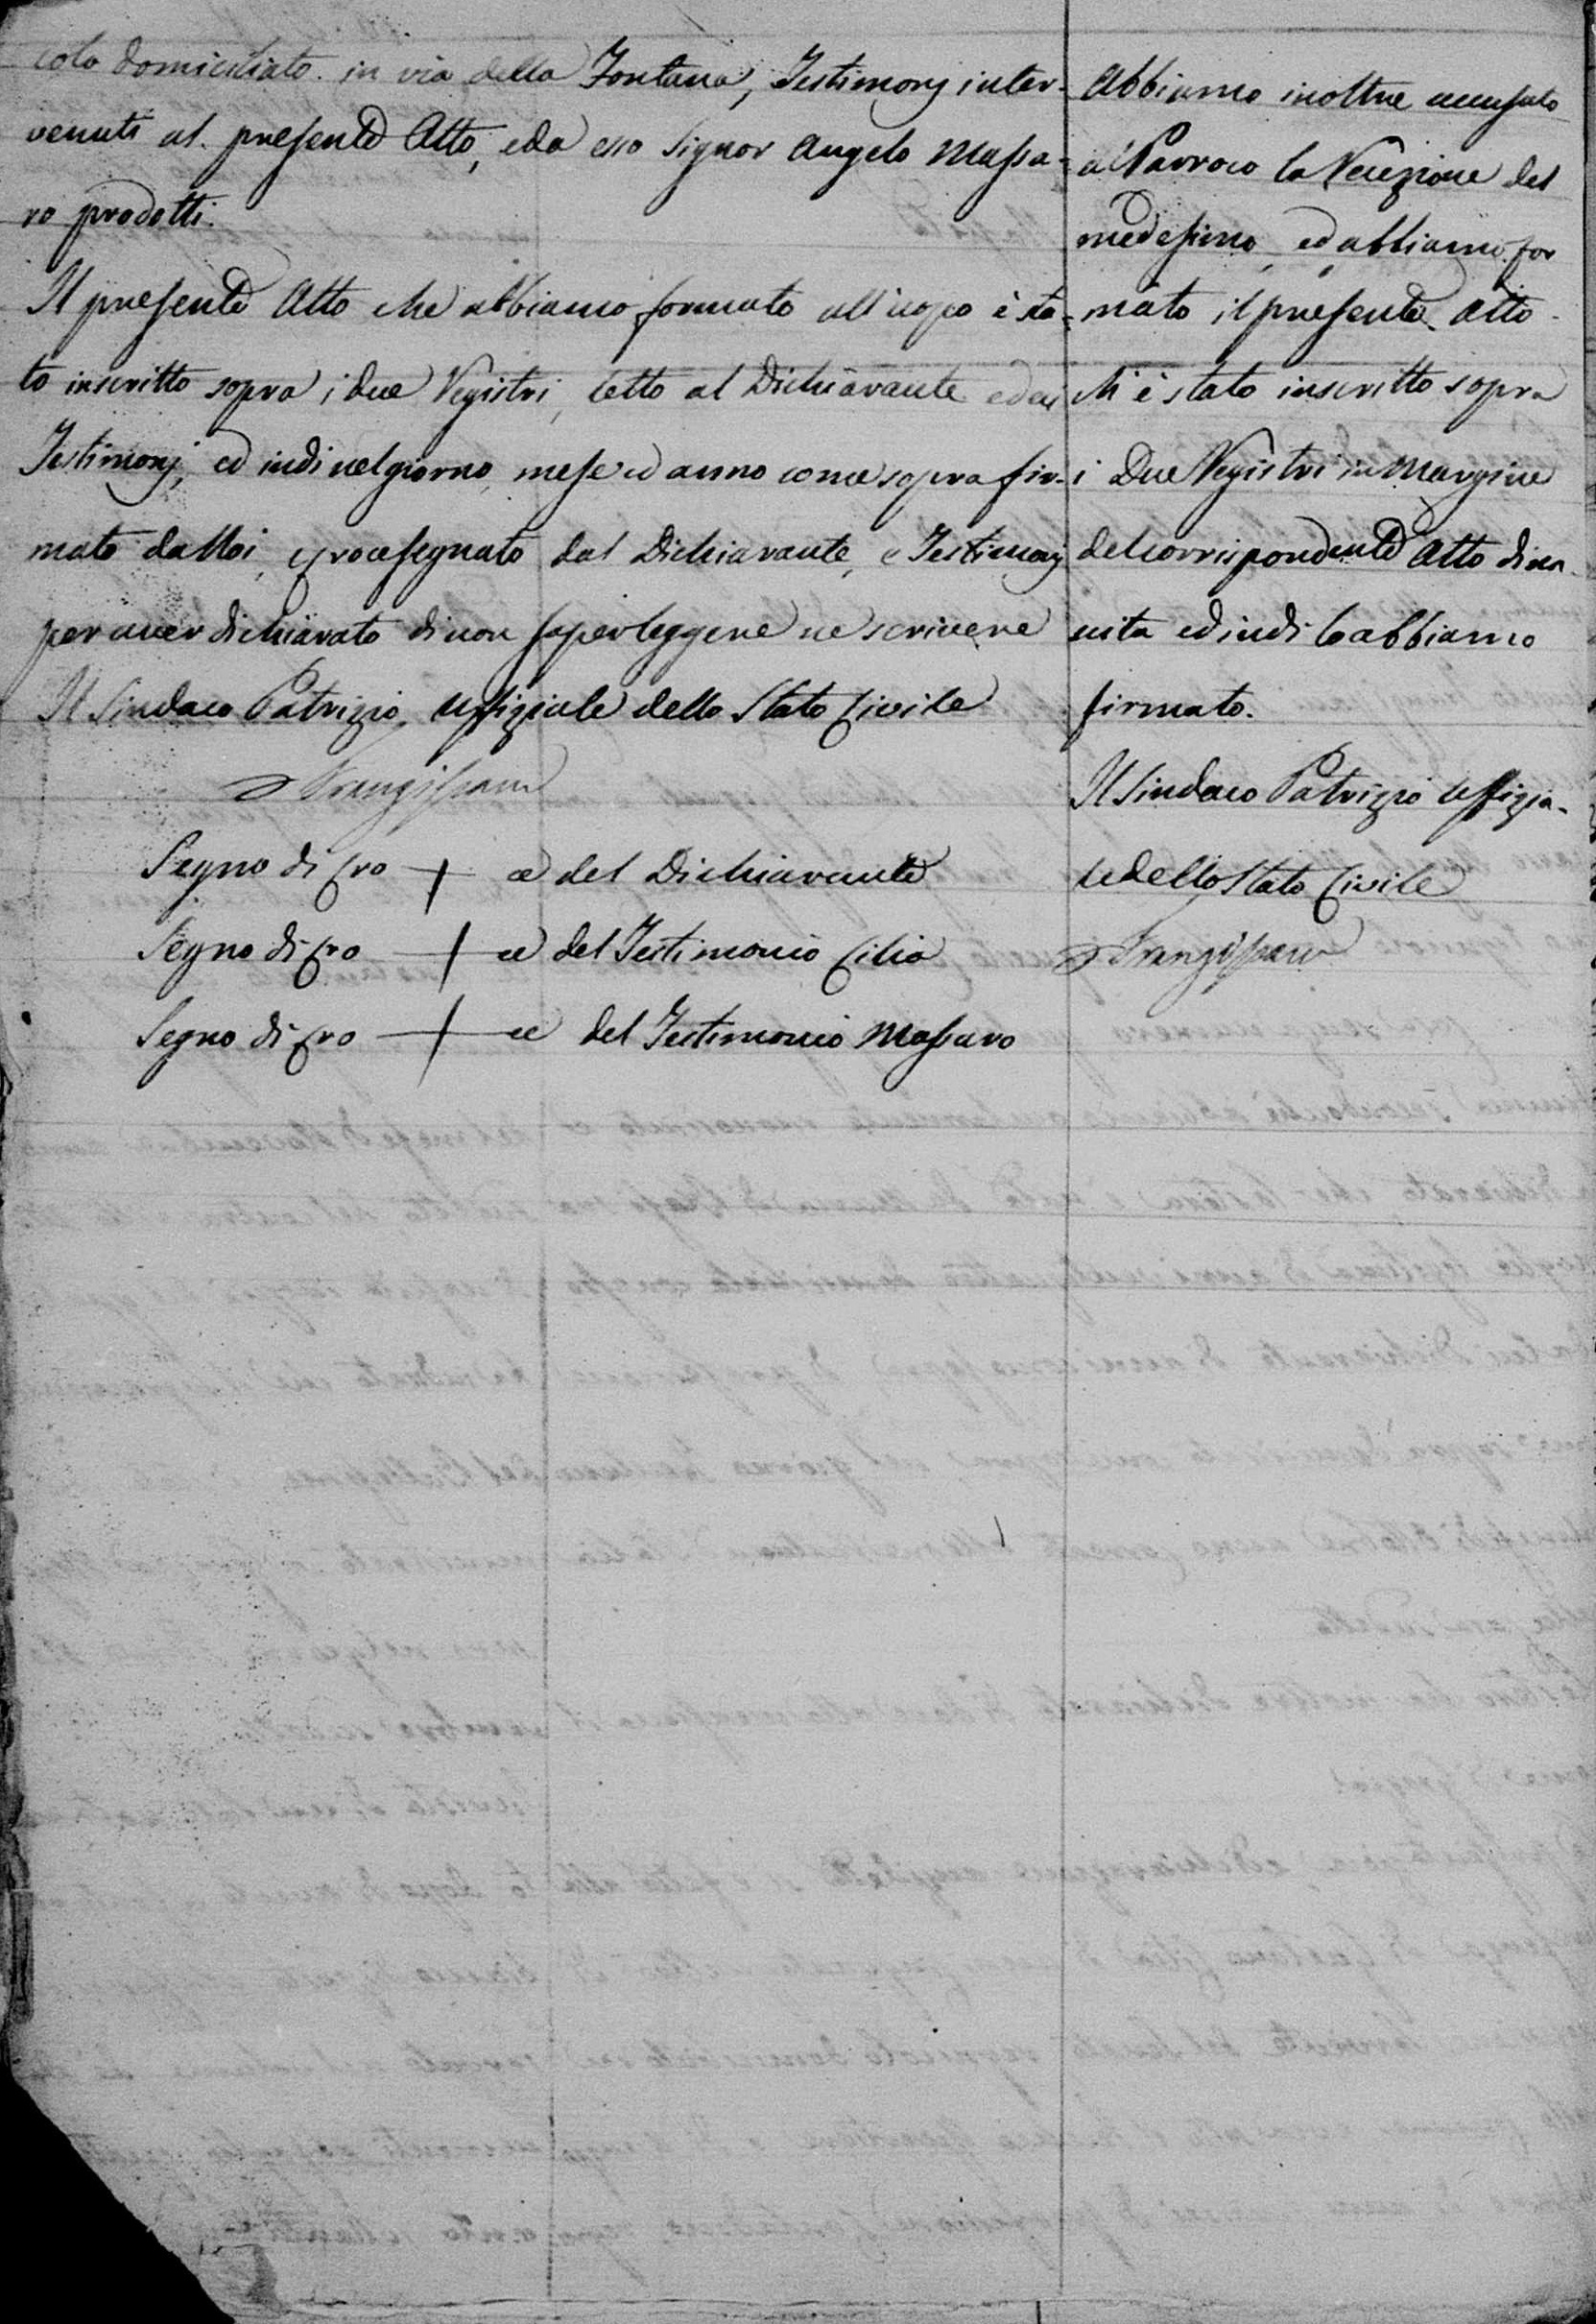 colo domiciliato in via della Fontana, Testimonj inter-
venuti al presente Atto, e da esso Signor Angelo Massa-
ro prodotti.
Il presente Atto che abbiamo formato all'uopo è sta-
to inscritto sopra i due Registri, letto al Dichiarante ed ai
Testimonj, ed indi nel giorno, mese ed anno come sopra fir-
mato da Noi, crocesegnato dal Dichiarante, e Testimonj
per aver dichiarato di non saper leggere ne scrivere
Il Sindaco Patrizio, Uffiziale dello Stato Civile
Frangipani
Segno di Cro + ce del Dichiarante
Segno di Cro + ce del Testimonio Cilia
Segno di Cro + ce del Testimonio Massaro
Abbiamo inoltre accusato
al Parroco la Recezione del
medesimo, ed abbiamo for
mato il presente Atto
ch'è stato inscritto sopra
i due Registri in Margine
del corrispondente Atto di na
scita ed indi lo abbiamo
firmato.
Il Sindaco Patrizio Uffizia-
le dello Stato Civile
Frangipani